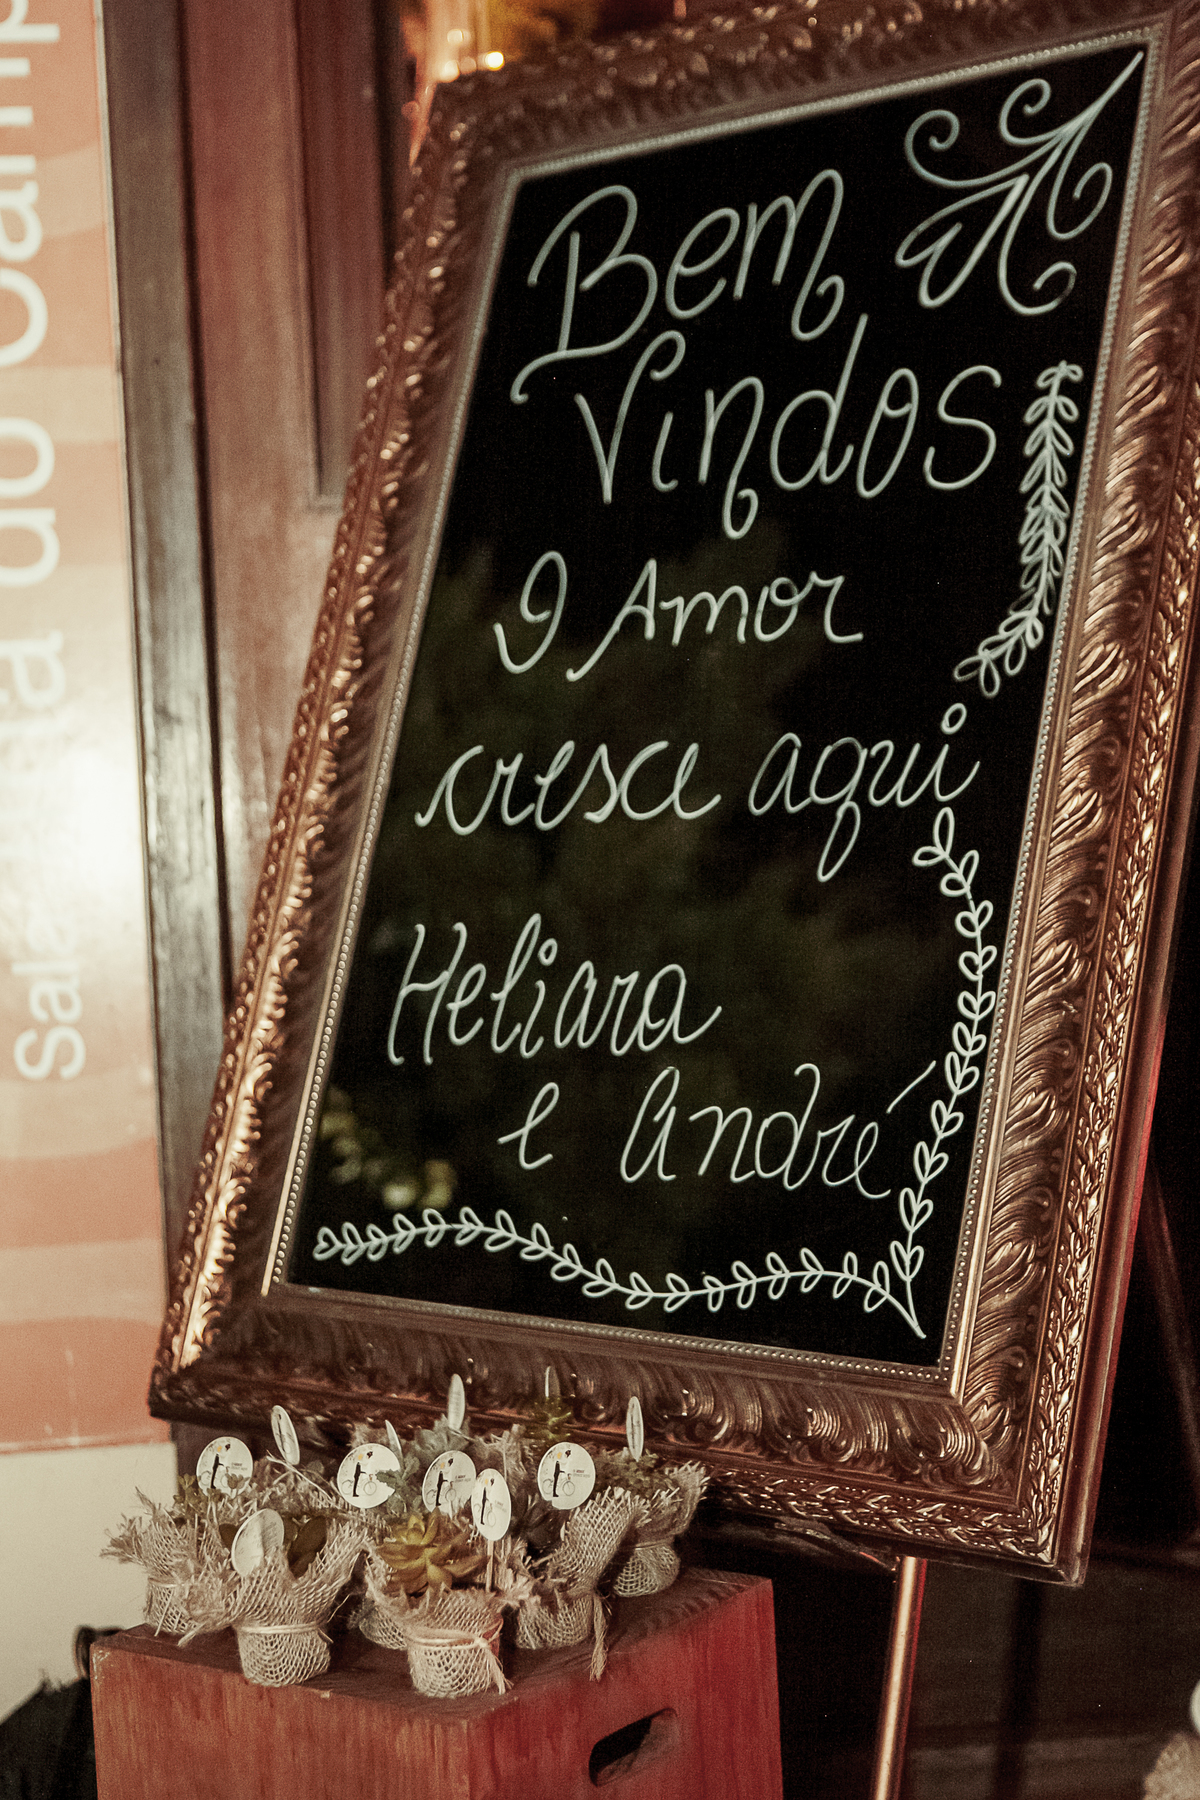 Bem
Vindos
O Amor
cresce aqui
Heliara
e André
do Camp
Sala